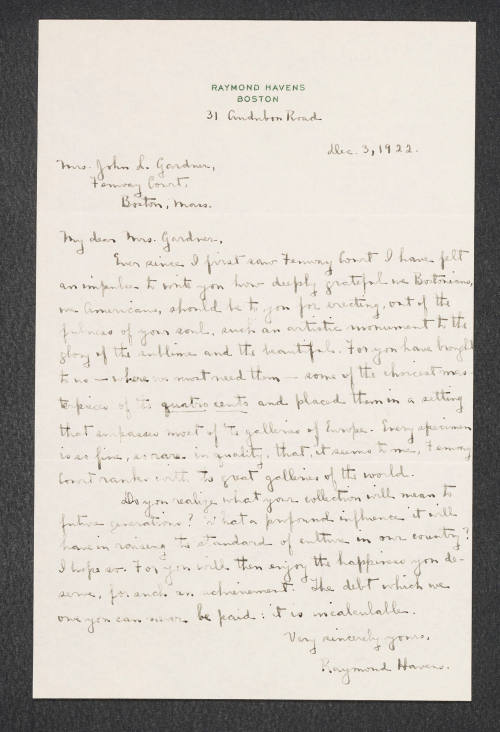 RAYMOND HAVENS
BOSTON
31 Audubon Road
Dec. 3, 1922.
Mrs. John L. Gardner,
Fenway Court,
Boston, Mass.
My dear Mrs. Gardner,
Ever since I first saw Fenway Court I have felt
an impulse to write you how deeply grateful we Bostonians,
we Americans, should be to you for erecting, out of the
fulness of your soul, such an artistic monument to the
glory of the sublime and the beautiful. For you have brought
to us — where we most need them — some of the choicest mas-
terpieces of the quatrocento and placed them in a setting
that surpasses most of the galleries of Europe. Every specimen
is so fine, so rare in quality, that, it seems to me, Fenway
Court ranks with the great galleries of the world.
Do you realize what your collection will mean to
future generations? What a profound influence it will
have in raising the standard of culture in our country?
I hope so. For you will then enjoy the happiness you de-
serve, for such an achievement. The debt which we
owe you can never be paid: it is incalculable.
Very sincerely yours,
Raymond Havens.